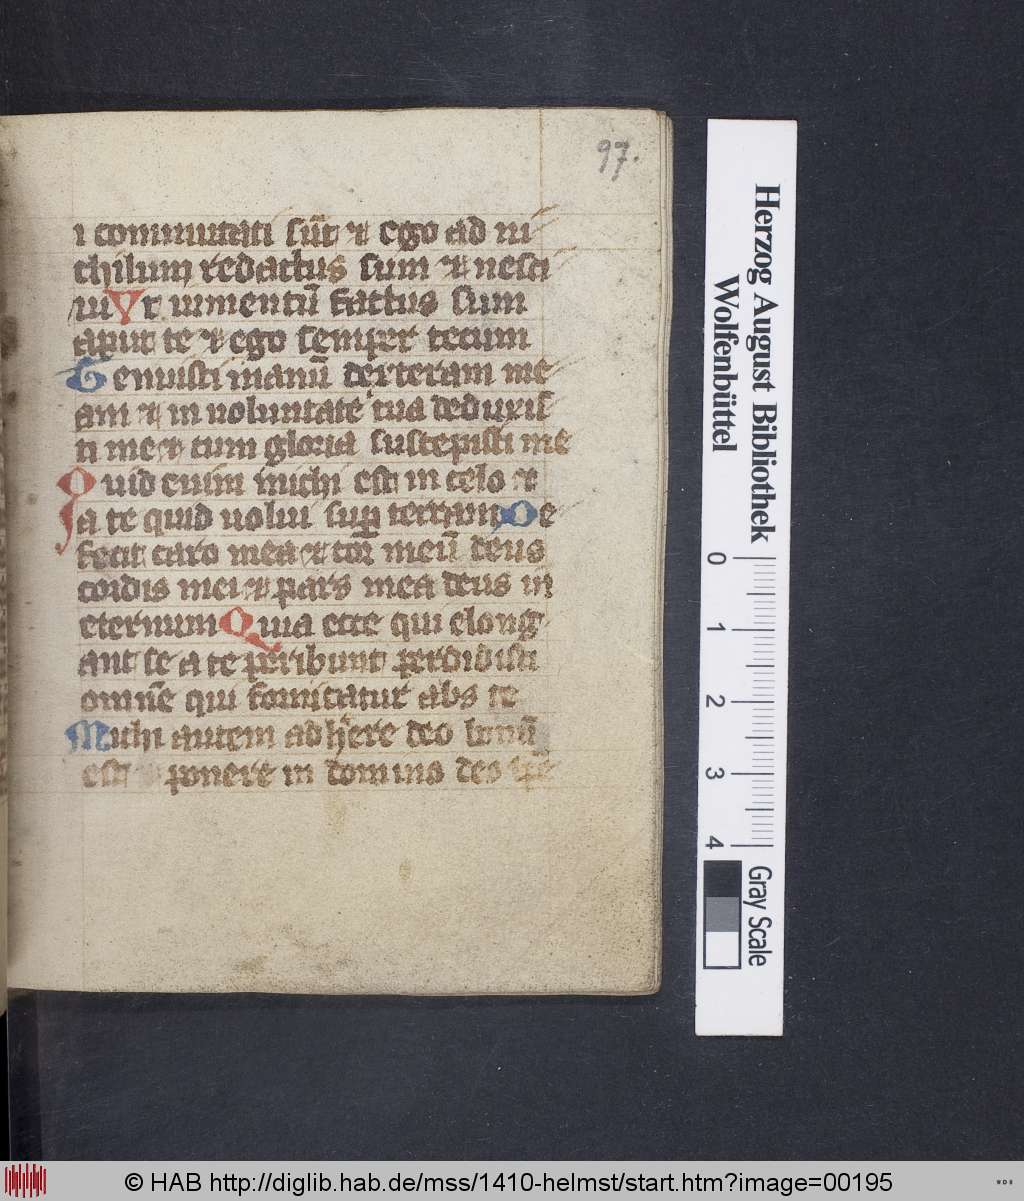 97.
i commutati sūt ⁊ ego ad ni
chilum redactus sum ⁊ nesci
ui Vt iumentū factus sum
aput te ⁊ ego semper tecum
Tenuisti manū dexteram me
am ⁊ in uoluntate tua deduxis
ti me ⁊ cum gloria suscepisti me
Quid enim michi est in celo ⁊
a te quid uolui sup̄ terram De
fecit caro mea ⁊ cor meū deus
cordis mei ⁊ pars mea deus in
eternum Quia ecce qui elong
ant se a te peribunt perdidisti
omn̄e qui fornicatur abs te
Michi autem adherere deo bonū
est ⁊ ponere in domino deo spē
Herzog August Bibliothek
Wolfenbüttel
0 1 2 3 4
Gray Scale
© HAB http://diglib.hab.de/mss/1410-helmst/start.htm?image=00195